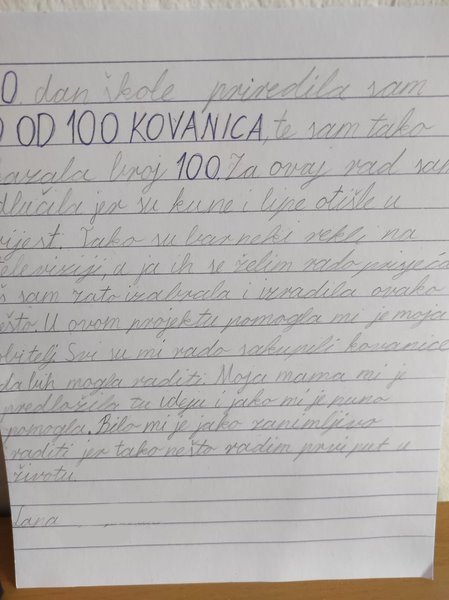 0. dan škole priredila sam
OD 100 KOVANICA, te sam tako
azala broj 100. Za ovaj rad sam
dlučila jer su kune i lipe otišle u
ijest. Tako su bar neki rekli na
televiziji, a ja ih se želim rado prisjeća
š sam zato izabrala i izradila ovako
ešto. U ovom projektu pomogla mi je moja
bitelj. Svi su mi rado sakupili kovanice
da bih mogla raditi. Moja mama mi j
predložila tu ideju i jako mi je puno
pomogla. Bilo mi je jako zanimljivo
raditi jer tako nešto radim prvi put u
životu.
Lana